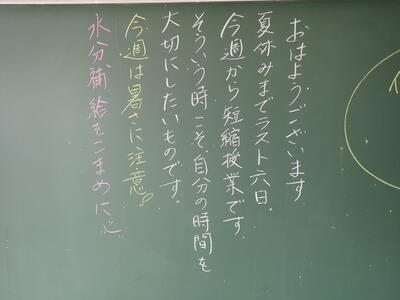 おはようございます
夏休みまでラスト六日.
今週から短縮授業です.
そういう時こそ、自分の時間を
大切にしたいものです。
今週は暑さに注意!!
水分補給をこまめに